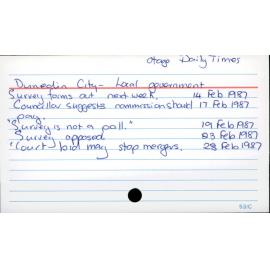 Otago Daily Times
Dunedin City - Local government
Survey forms out next week. 14 Feb 1987
Councillor suggests commission should 17 Feb 1987
pay.
"Survey is not a poll." 19 Feb 1987
Survey opposed 23 Feb 1987
"Court bid may stop mergers. 28 Feb 1987